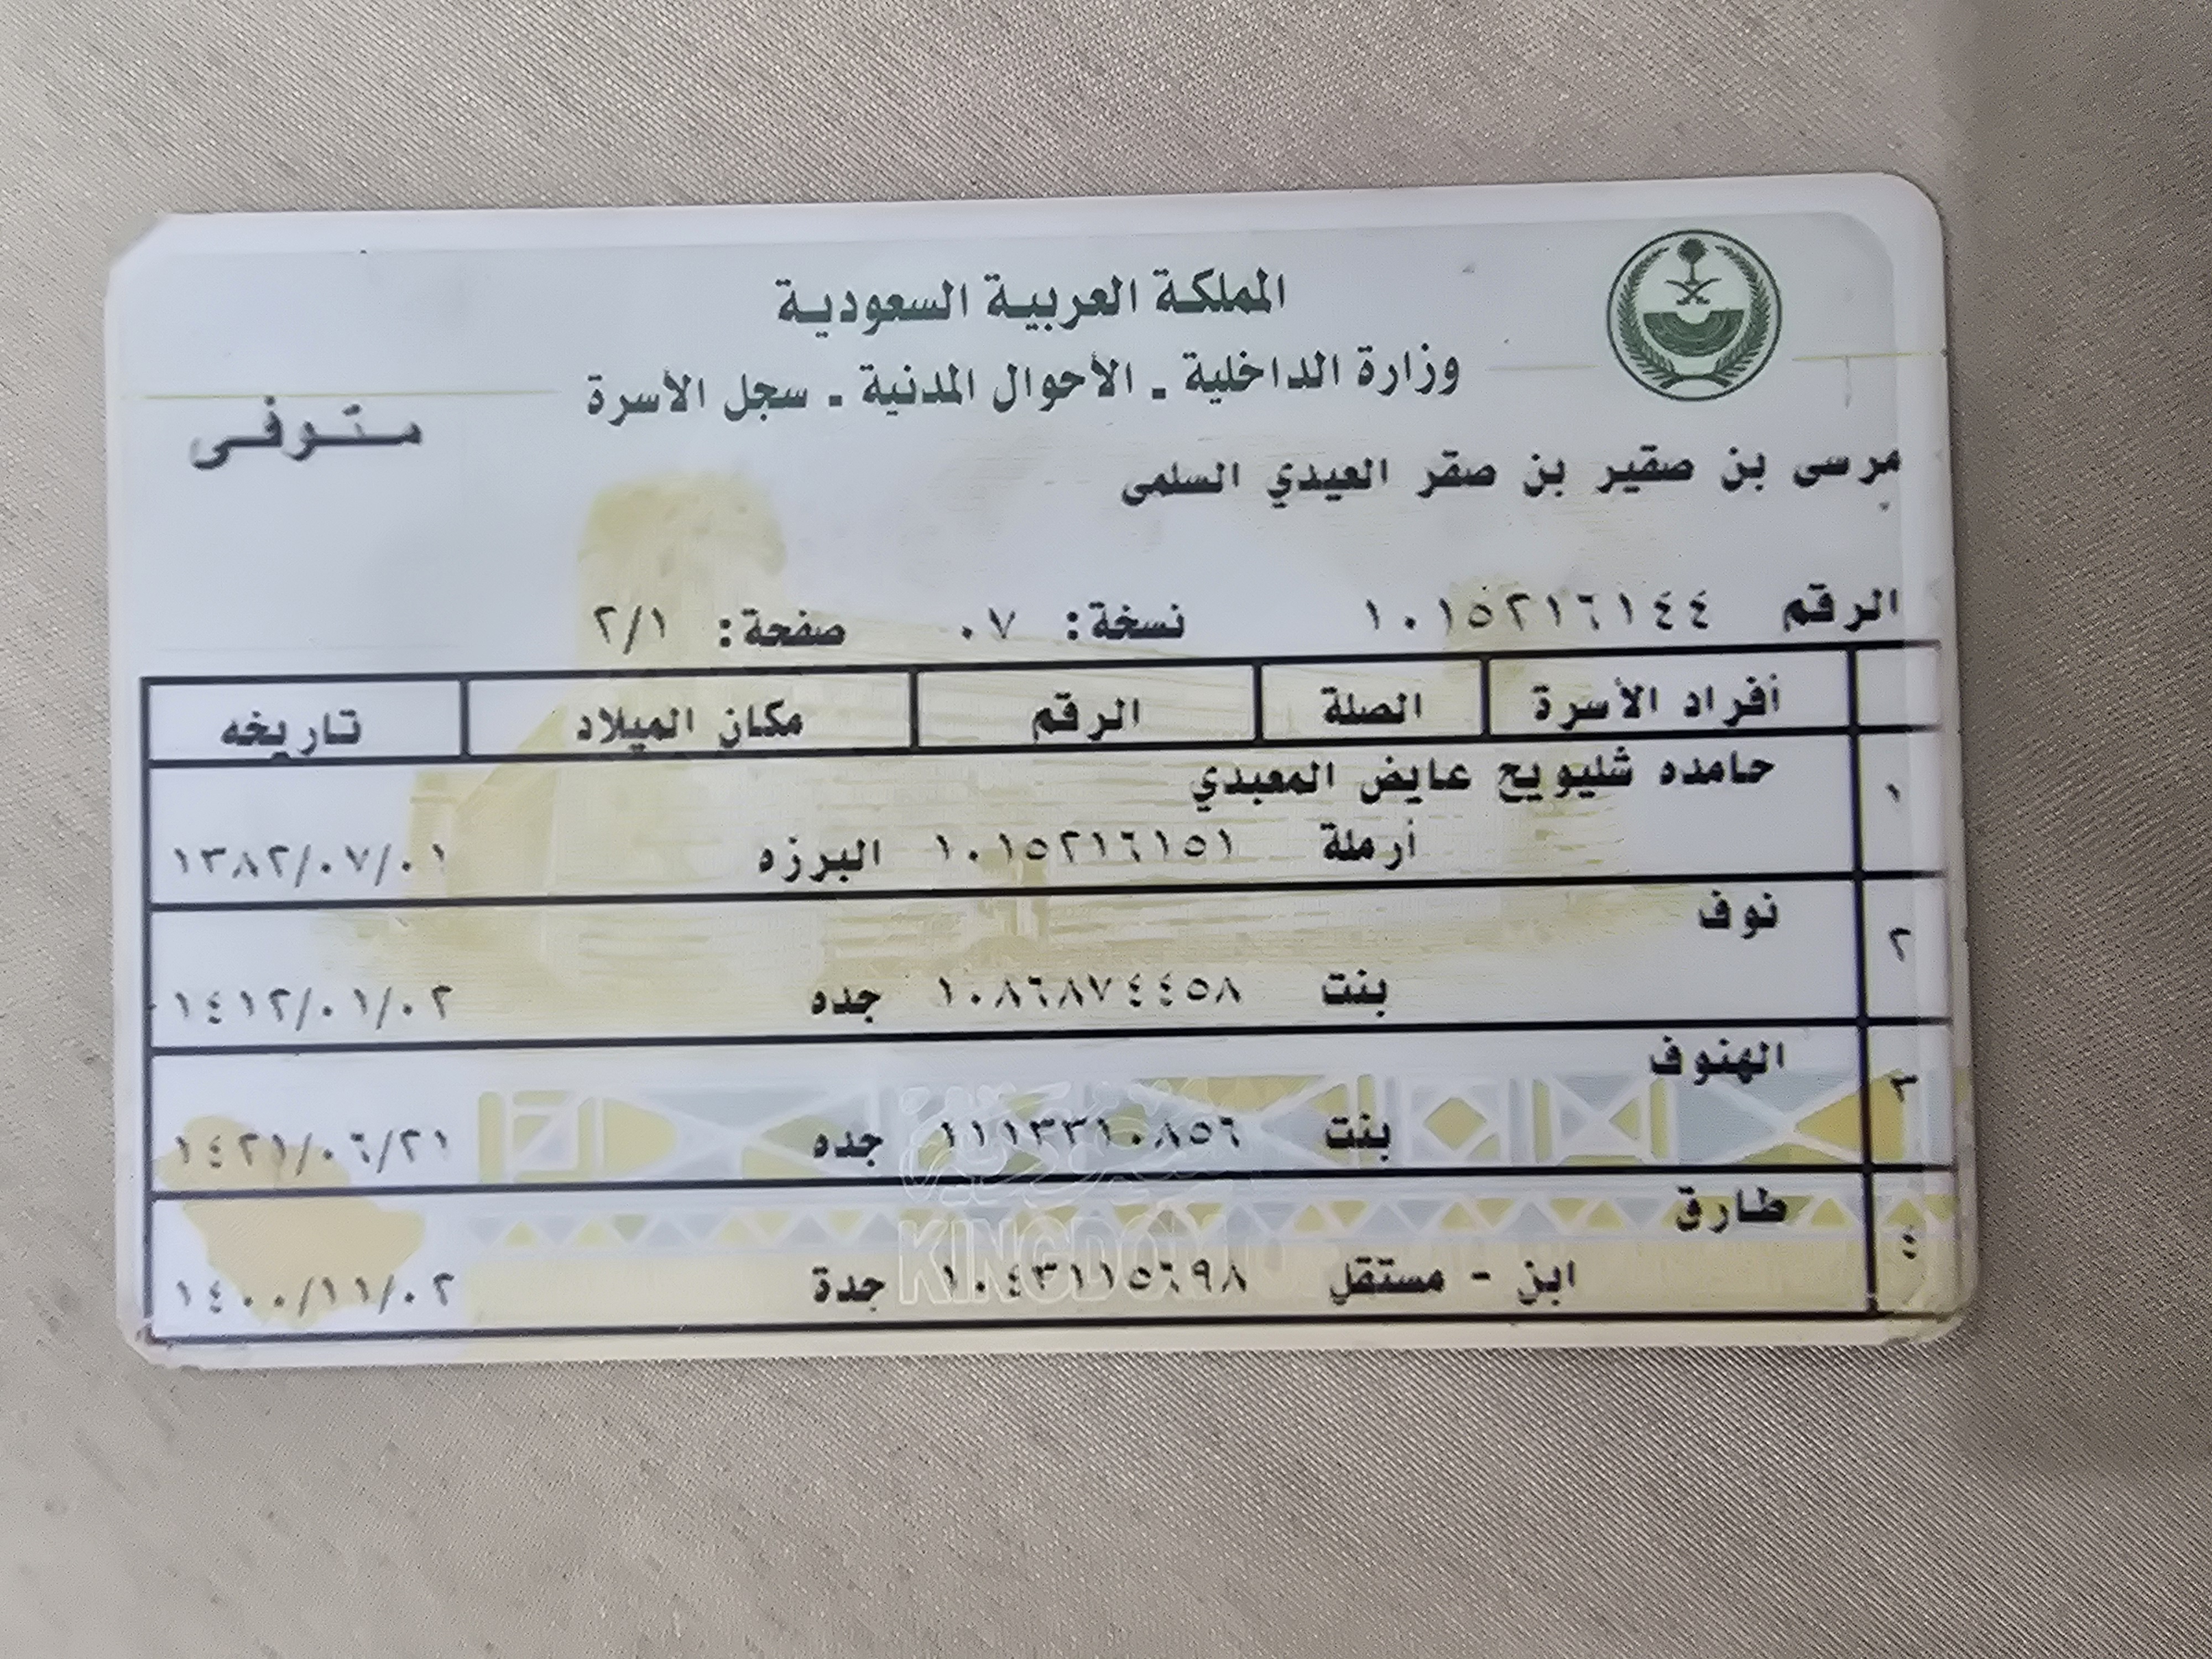 المملكة العربية السعودية
وزارة الداخلية - الأحوال المدنية - سجل الأسرة
متوفى
مرسى بن صقير بن صقر العبدي السلمى
الرقم ١٠١٥٢١٦١٤٤ نسخة: ٠٧ صفحة: ٢/١
أفراد الأسرة الصلة الرقم مكان الميلاد تاريخه
١ حامده شليويح عايض المعبدي
أرملة ١٠١٥٢١٦١٥١ البرزه ١٣٨٢/٠٧/٠١
٢ نوف
بنت ١٠٨٦٨٧٤٤٥٨ جده ١٤١٢/٠١/٠٢
٣ الهنوف
بنت ١١١٣٣١٠٨٥٦ جده ١٤٢١/٠٦/٢١
٤ طارق
ابن - مستقل ١٠٤٣١١٥٦٩٨ جدة ١٤٠٠/١١/٠٢
KINGDOM O